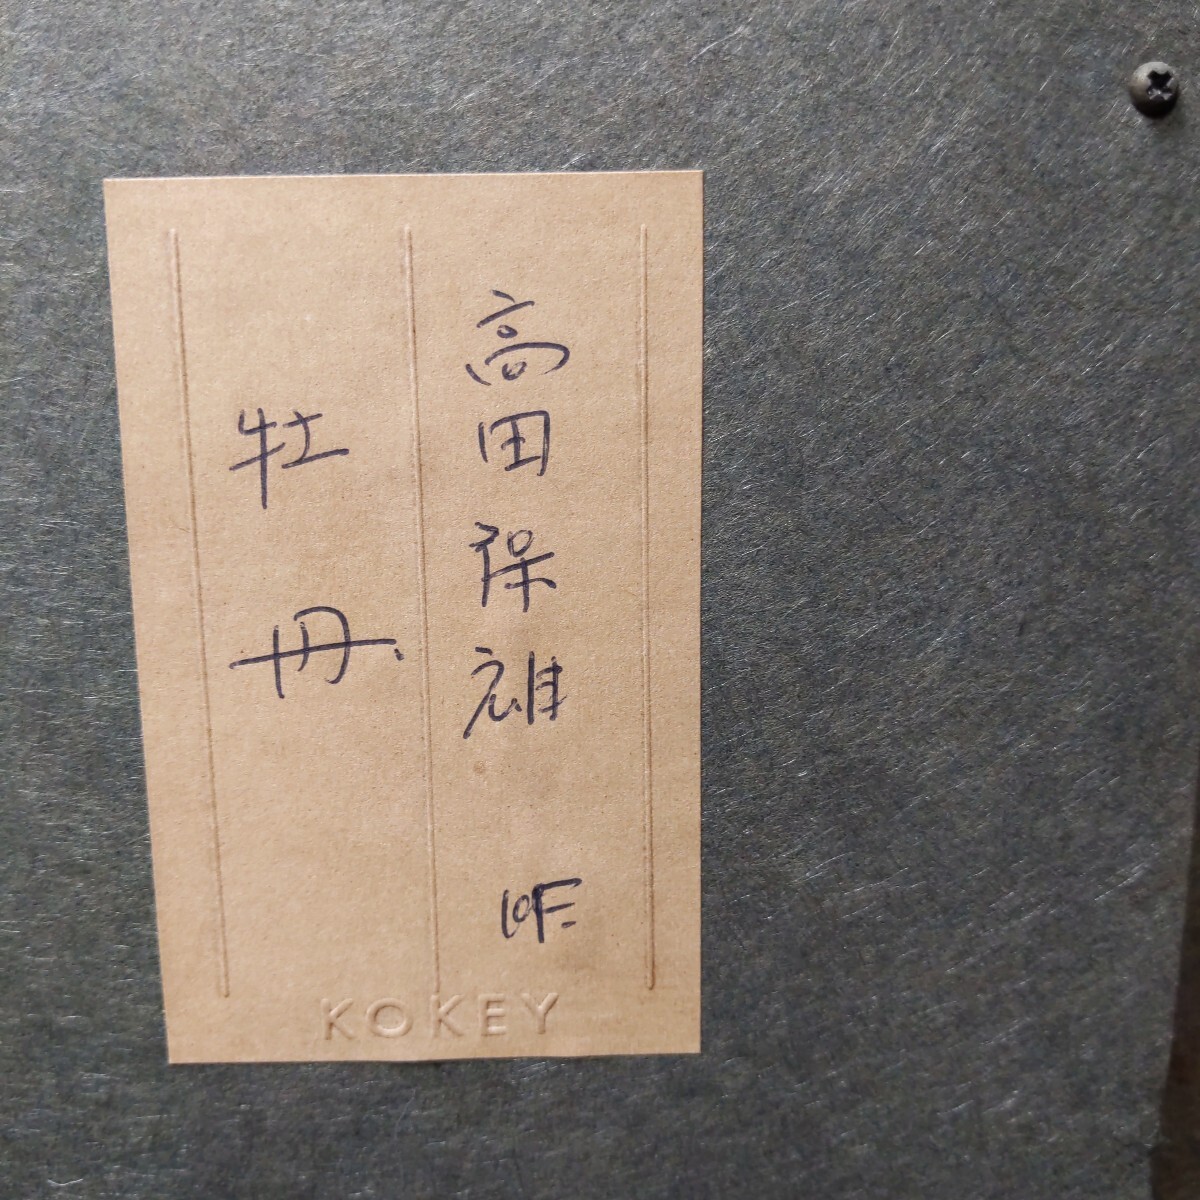 高田保雄 作
牡丹
KOKEY